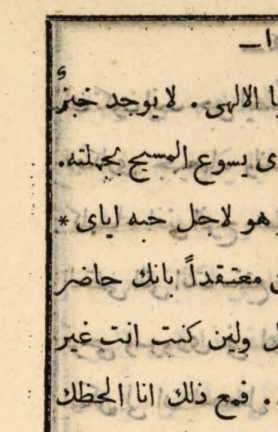 ـا الالهى . لا يوجد خبزٌ
ى يسوع المسيح بجملته.
هو لاجل حبه اياى *
معتقداً بانك حاضر
ولين كنت انت غير
. فمع ذلك انا الحظك